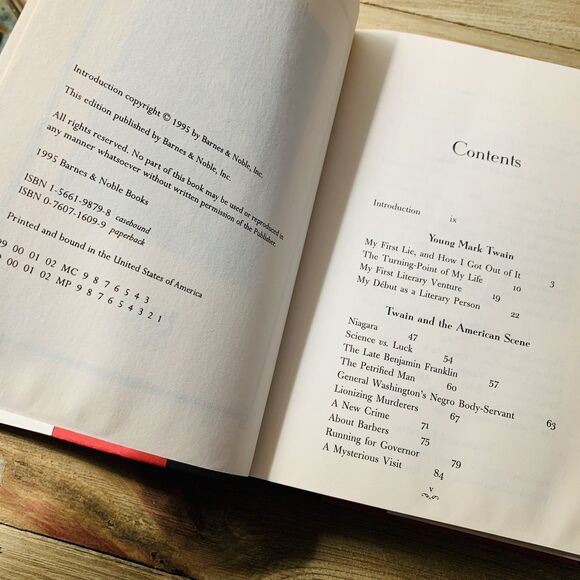 Introduction copyright © 1995 by Barnes & Noble, Inc.
This edition published by Barnes & Noble, Inc.
All rights reserved. No part of this book may be used or reproduced in
any manner whatsoever without written permission of the Publisher.
1995 Barnes & Noble Books
ISBN 1-5661-9879-8 casebound
ISBN 0-7607-1609-9 paperback
Printed and bound in the United States of America
99 00 01 02 MC 9 8 7 6 5 4 3
00 01 02 MP 9 8 7 6 5 4 3 2 1
Contents
Introduction ix
Young Mark Twain
My First Lie, and How I Got Out of It 3
The Turning-Point of My Life 10
My First Literary Venture 19
My Début as a Literary Person 22
Twain and the American Scene
Niagara 47
Science vs. Luck 54
The Late Benjamin Franklin 57
The Petrified Man 60
General Washington's Negro Body-Servant 63
Lionizing Murderers 67
A New Crime 71
About Barbers 75
Running for Governor 79
A Mysterious Visit 84
v